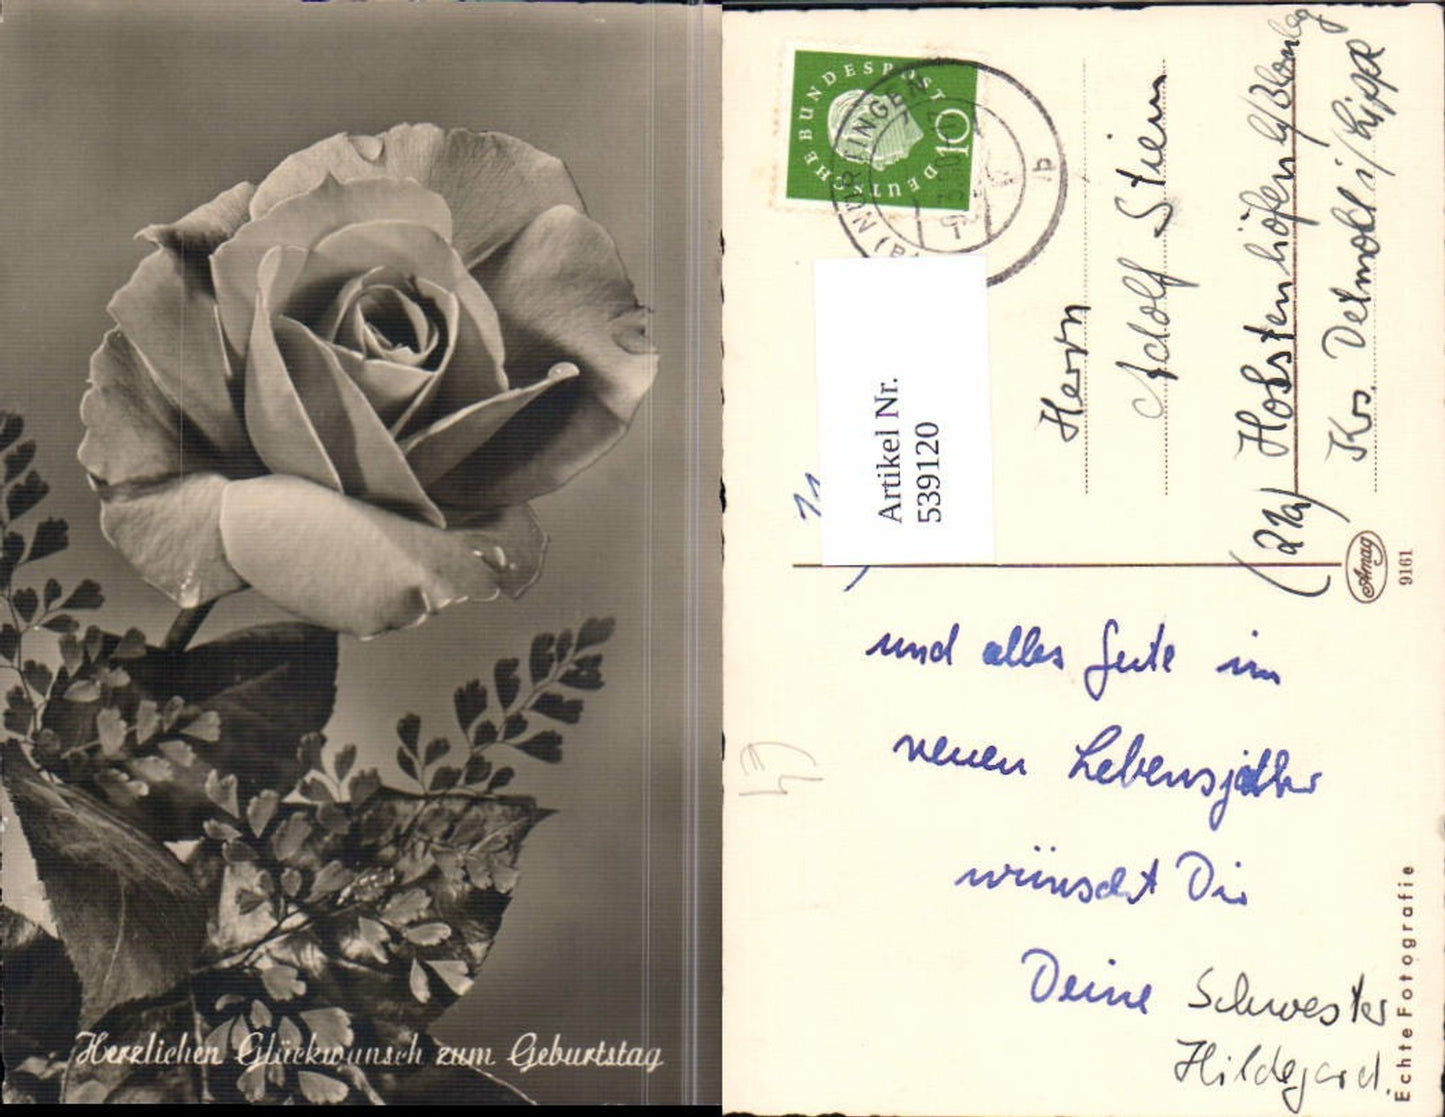 Herzlichen Glückwunsch zum Geburtstag
DEUTSCHE BUNDESPOST
10
NÜRTINGEN
b
Artikel Nr.
539120
Herrn
Adolf Stein
(21a)
Krs. Detmold i/Lippe
Amag
9161
und alles Gute im
neuen Lebensjahr
wünscht Dir
Deine Schwester
Hildegard.
Echte Fotografie